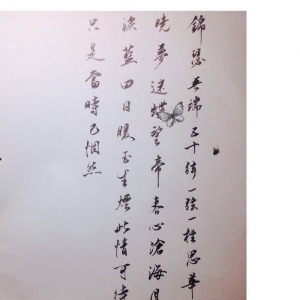 錦瑟無端五十弦一弦一柱思華
曉夢迷蝶望帝春心滄海月
淚藍田日暖玉生煙此情可待
只是當時已惘然